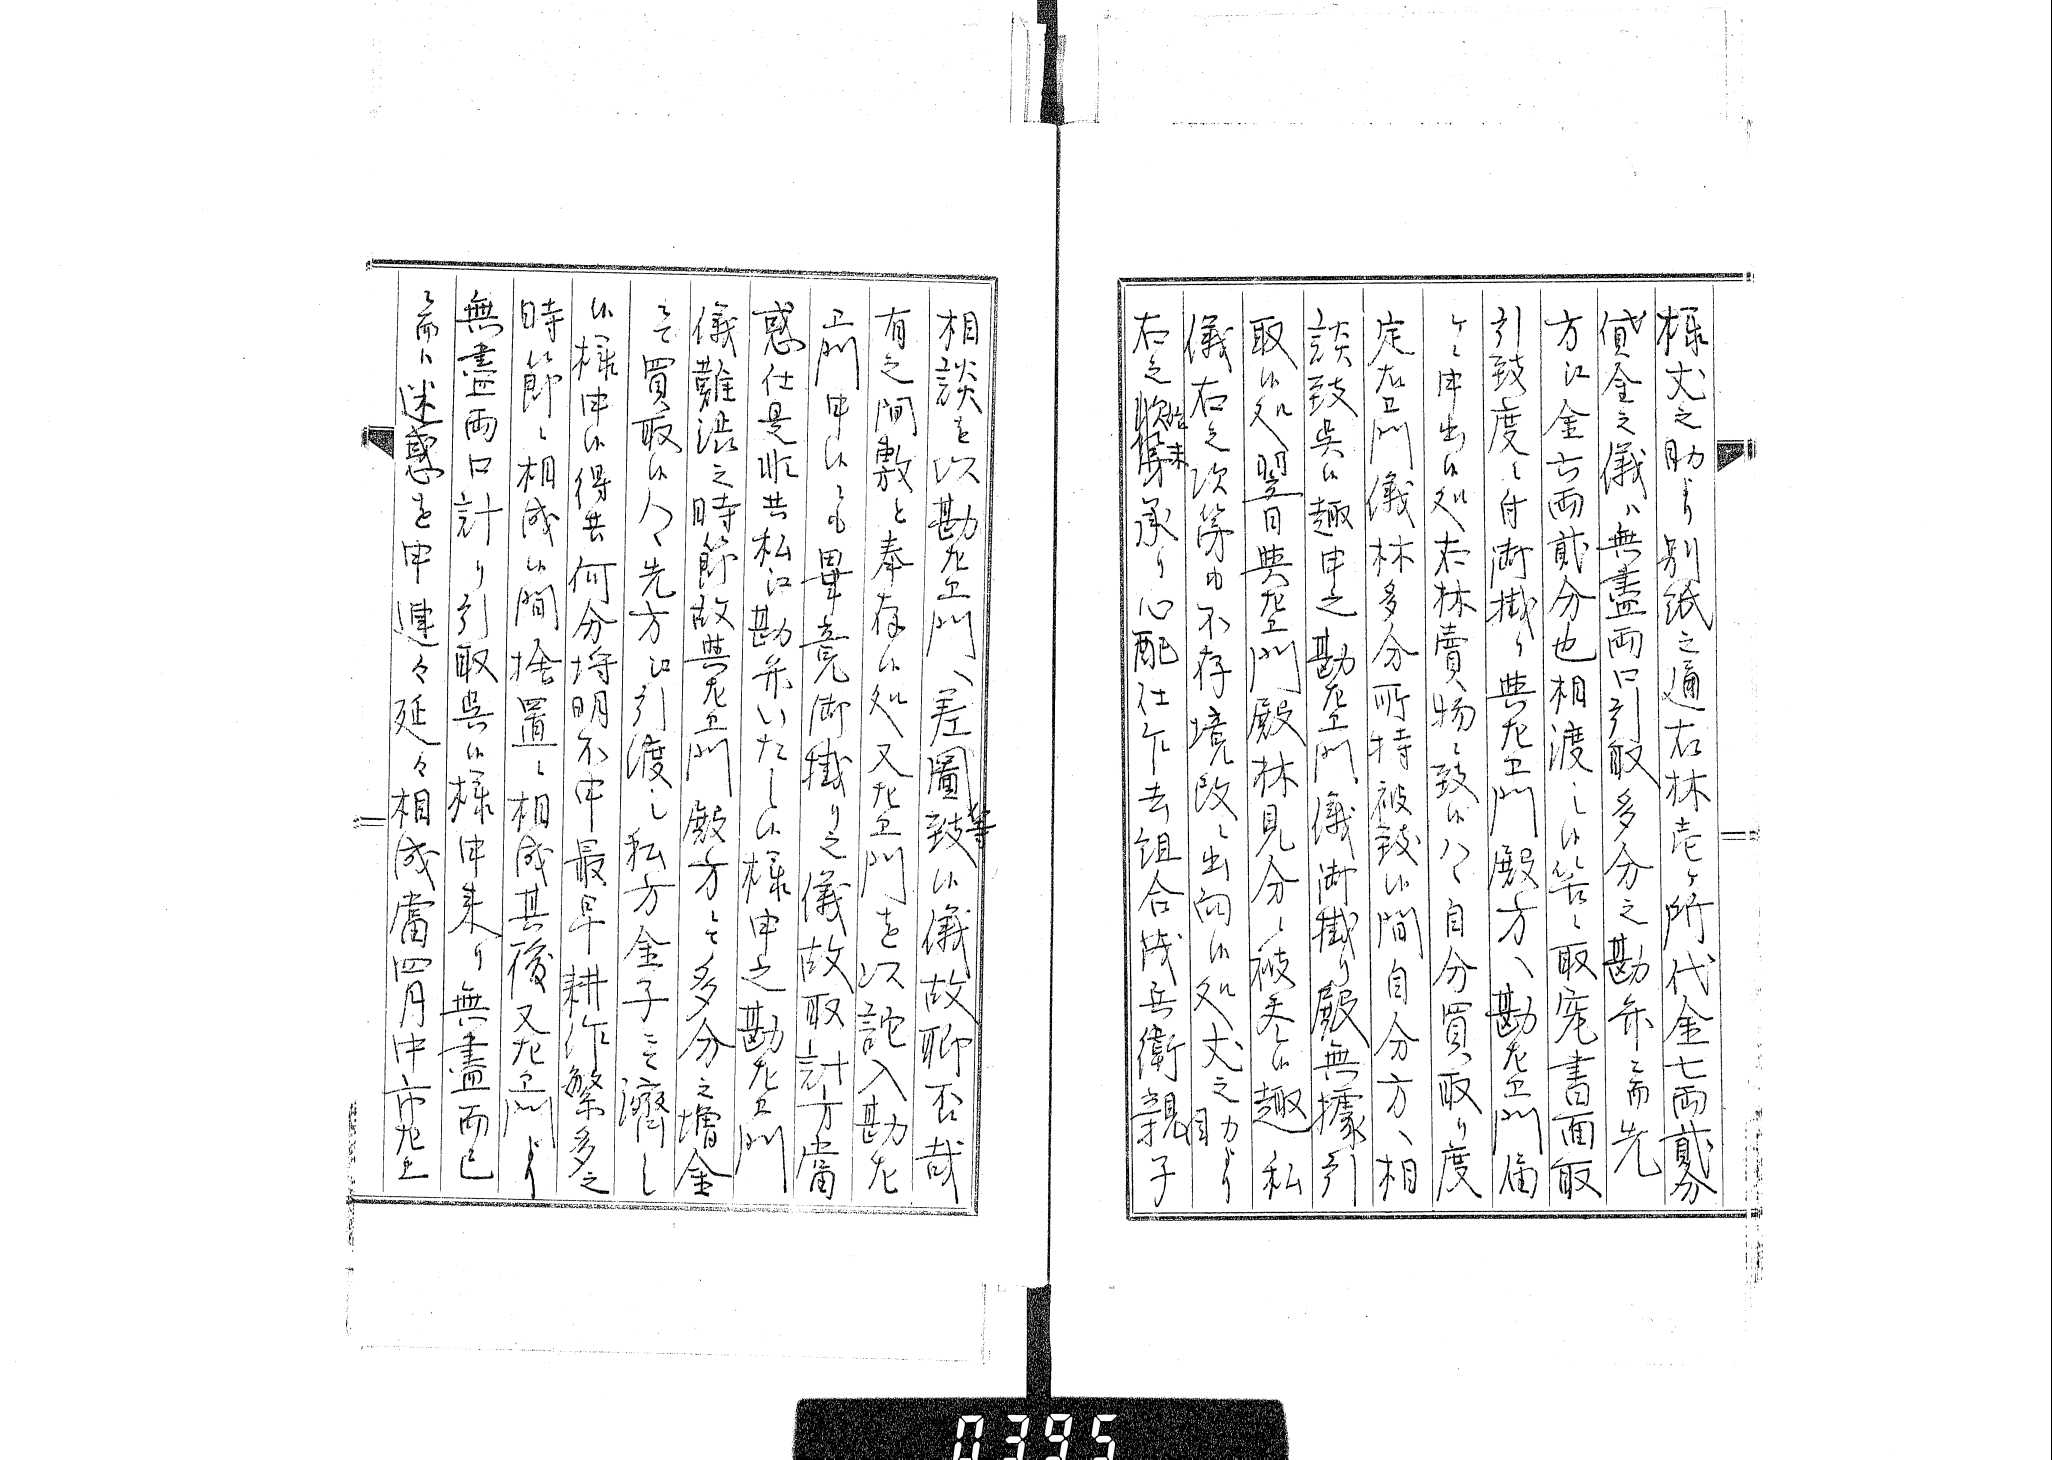 様丈之助より別紙之通右林壱ヶ所代金七両貳分
貸金之儀ハ無盡両口引取多分之勘弁ニ而先
方江金六両貳分也相渡し候筈ニ取究書面取
引致度ニ付御掛り典左卫門殿方へ勘左卫門届
ケニ申出候処右林賣物ニ致候ハヽ自分買取り度
定右卫門儀林多分所持被致候間自分方へ相
談致呉候趣申之勘左卫門儀御掛り殿無據引
取候処翌日典左卫門殿林見分ニ被参候趣私
儀右之次第も不存境改ニ出向候処丈之助より
右之始末承り心配仕乍去組合茂兵衛親子
相談を以勘左卫門へ差圖致候儀故聊否哉
等
有之間敷と奉存候処又左卫門を以詫入勘左
卫門申候ニも畢竟御掛り之儀故取計方當
惑仕是非共私江勘弁いたし候様申之勘左卫門
儀難澁之時節故典左卫門殿方ニて多分之増金
ニて買取候ハヽ先方江引渡し私方金子ニて済し
候様申候得共何分埒明不申最早耕作繁多之
時節ニ相成候間捨置ニ相成其後又左卫門より
無盡両口計り引取呉候様申来り無盡両已
ニ而ハ迷惑を申遅々延々相成當四月中市左卫
0395